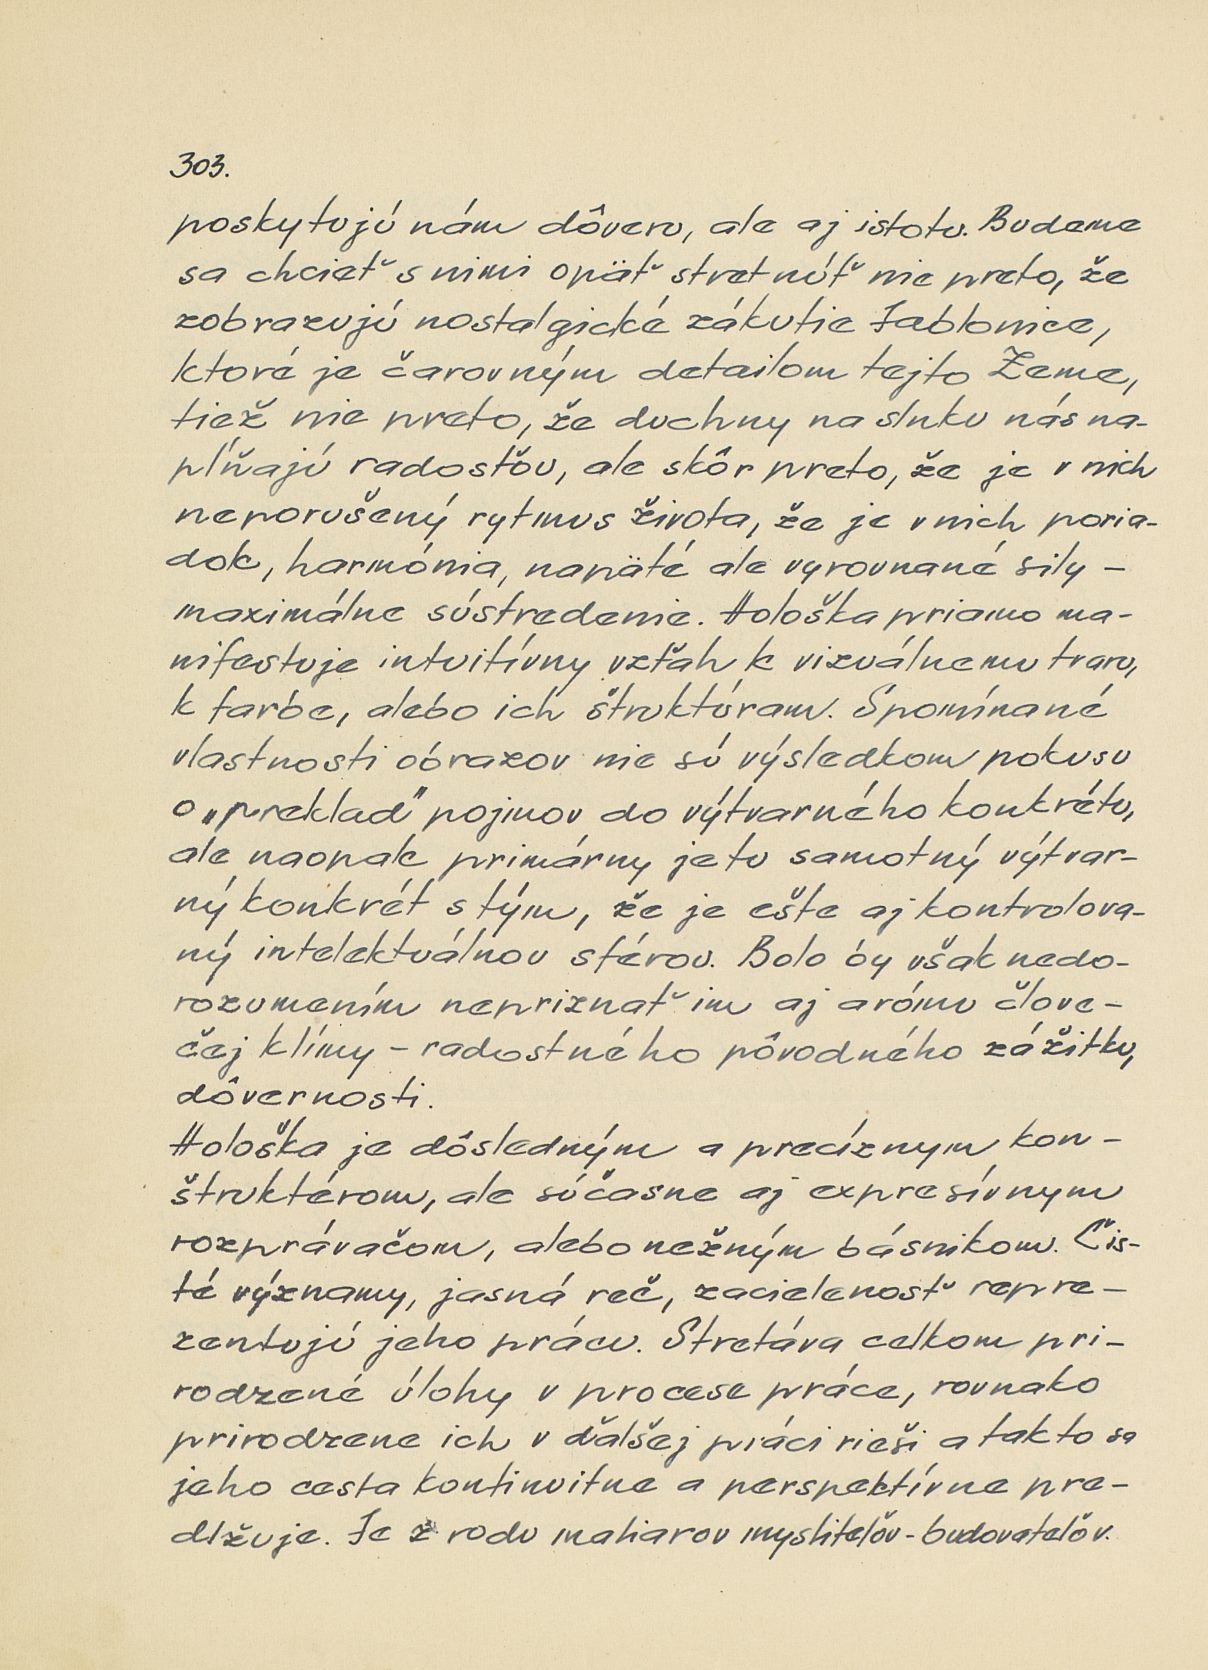 303.
poskytujú nám dôveru, ale aj istotu. Budeme
sa chcieť s nimi opäť stretnúť nie preto, že
zobrazujú nostalgické zákutie Jablonice,
ktoré je čarovným detailom tejto Zeme,
tiež nie preto, že duchny na slnku nás na-
pĺňajú radosťou, ale skôr preto, že je v nich
neporušený rytmus života, že je v nich poria-
dok, harmónia, napäté ale vyrovnané sily -
maximálne sústredenie. Hološka priamo ma-
nifestuje intuitívny vzťah k vizuálnemu tvaru,
k farbe, alebo ich štruktúram. Spomínané
vlastnosti obrazov nie sú výsledkom pokusu
o „preklad" pojmov do výtvarného konkrétu,
ale naopak primárny je tu samotný výtvar-
ný konkrét s tým, že je ešte aj kontrolova-
ný intelektuálnou sférou. Bolo by však nedo-
rozumením nepriznať im aj arómu člove-
čej klímy - radostného pôvodného zážitku,
dôvernosti.
Hološka je dôsledným a precíznym kon-
štruktérom, ale súčasne aj expresívnym
rozprávačom, alebo nežným básnikom. Čis-
té významy, jasná reč, zacielenosť repre-
zentujú jeho prácu. Stretáva celkom pri-
rodzené úlohy v procese práce, rovnako
prirodzene ich v ďalšej práci rieši a takto sa
jeho cesta kontinuitne a perspektívne pre-
dlžuje. Je z rodu maliarov mysliteľov - budovateľov.